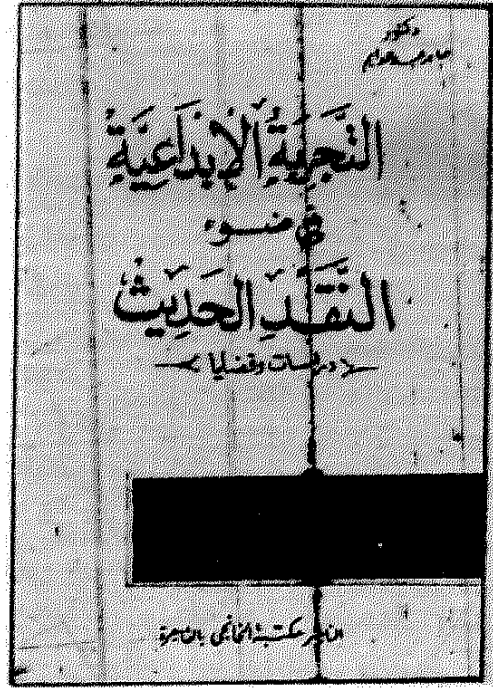 دكتور
صابر عبد الدايم
التَّجرِبَةُ الْإِبْدَاعِيَّةُ
في ضوء
النَّقْدِ الحَدِيثِ
دراسات وقضايا
الناشر مكتبة الخانجى بالقاهرة